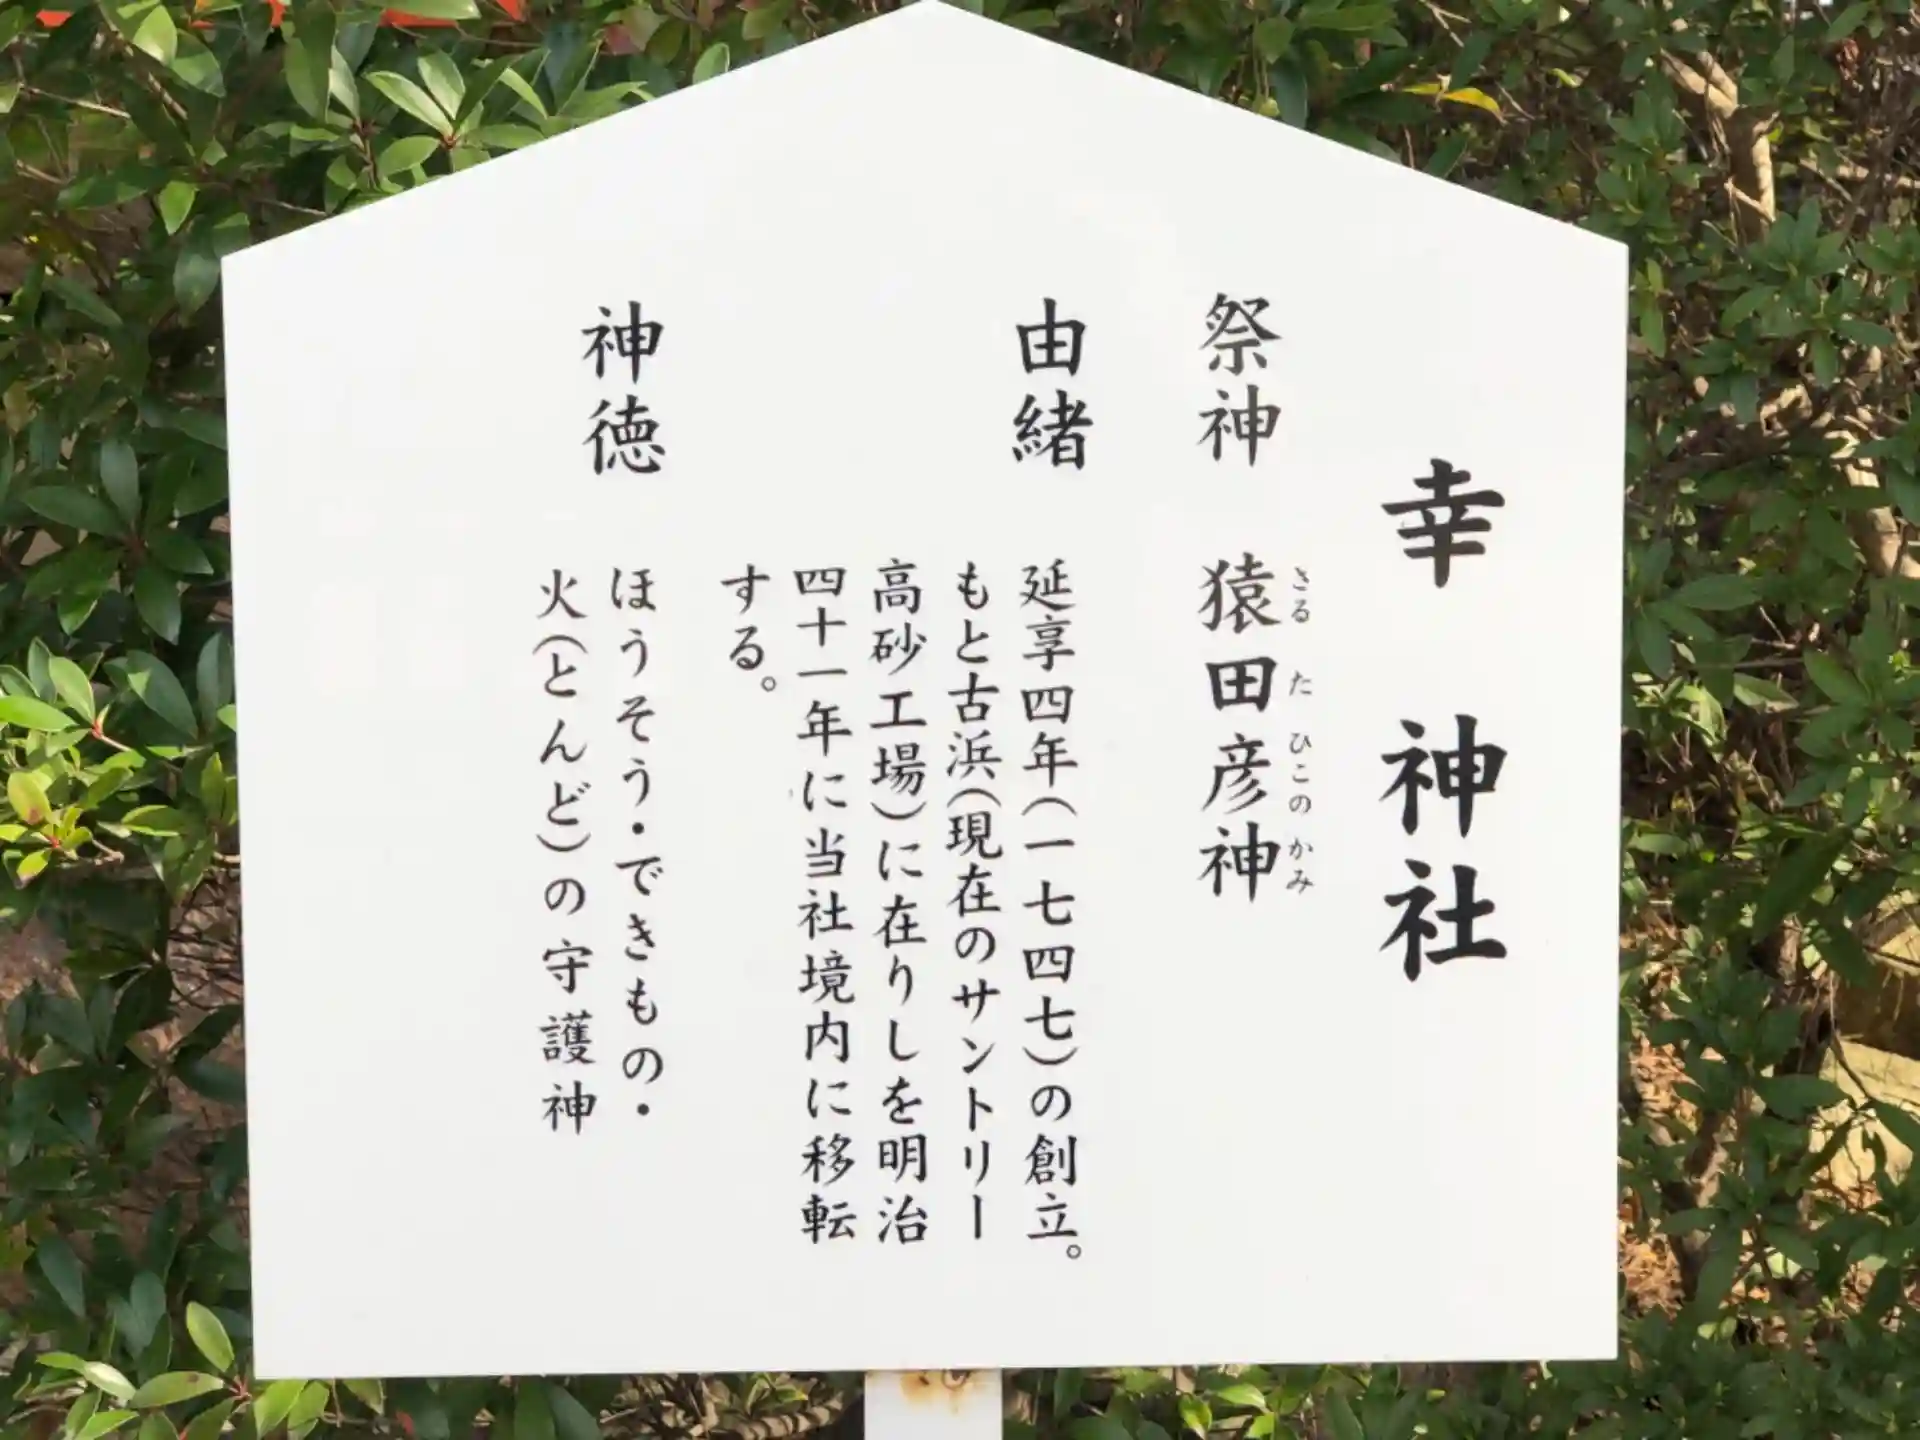 幸神社
祭神 猿田彦神
さる た ひこの かみ
由緒 延享四年(一七四七)の創立。
もと古浜(現在のサントリー
高砂工場)に在りしを明治
四十一年に当社境内に移転
する。
神徳 ほうそう・できもの・
火(とんど)の守護神